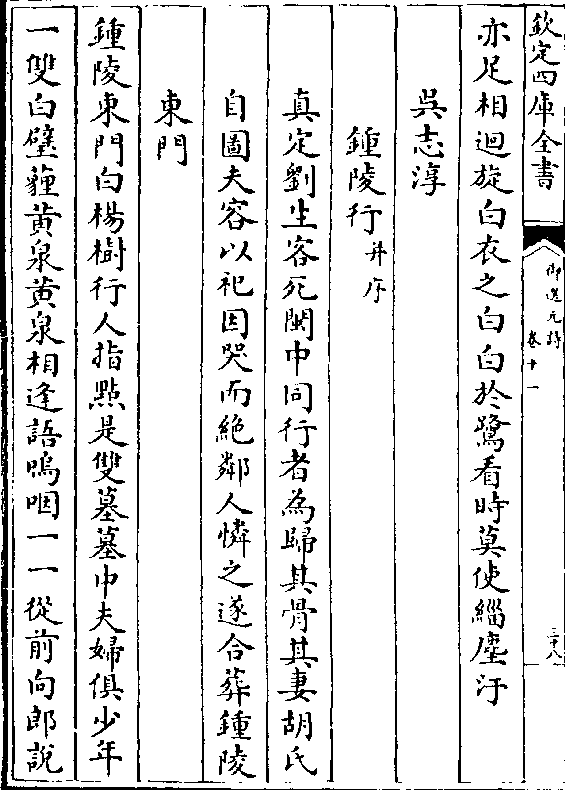 欽定四庫全書
御選元詩
卷十一
三十八
亦足相迴旋白衣之白白於鷺看時莫使緇塵汙
吳志淳
鍾陵行并序
真定劉生客死閩中同行者為歸其骨其妻胡氏
自圖夫容以祀因哭而絶鄰人憐之遂合葬鍾陵
東門
鍾陵東門白楊樹行人指點是雙墓墓中夫婦俱少年
一雙白璧薶黄泉黄泉相逢語嗚咽一一從前向郎說